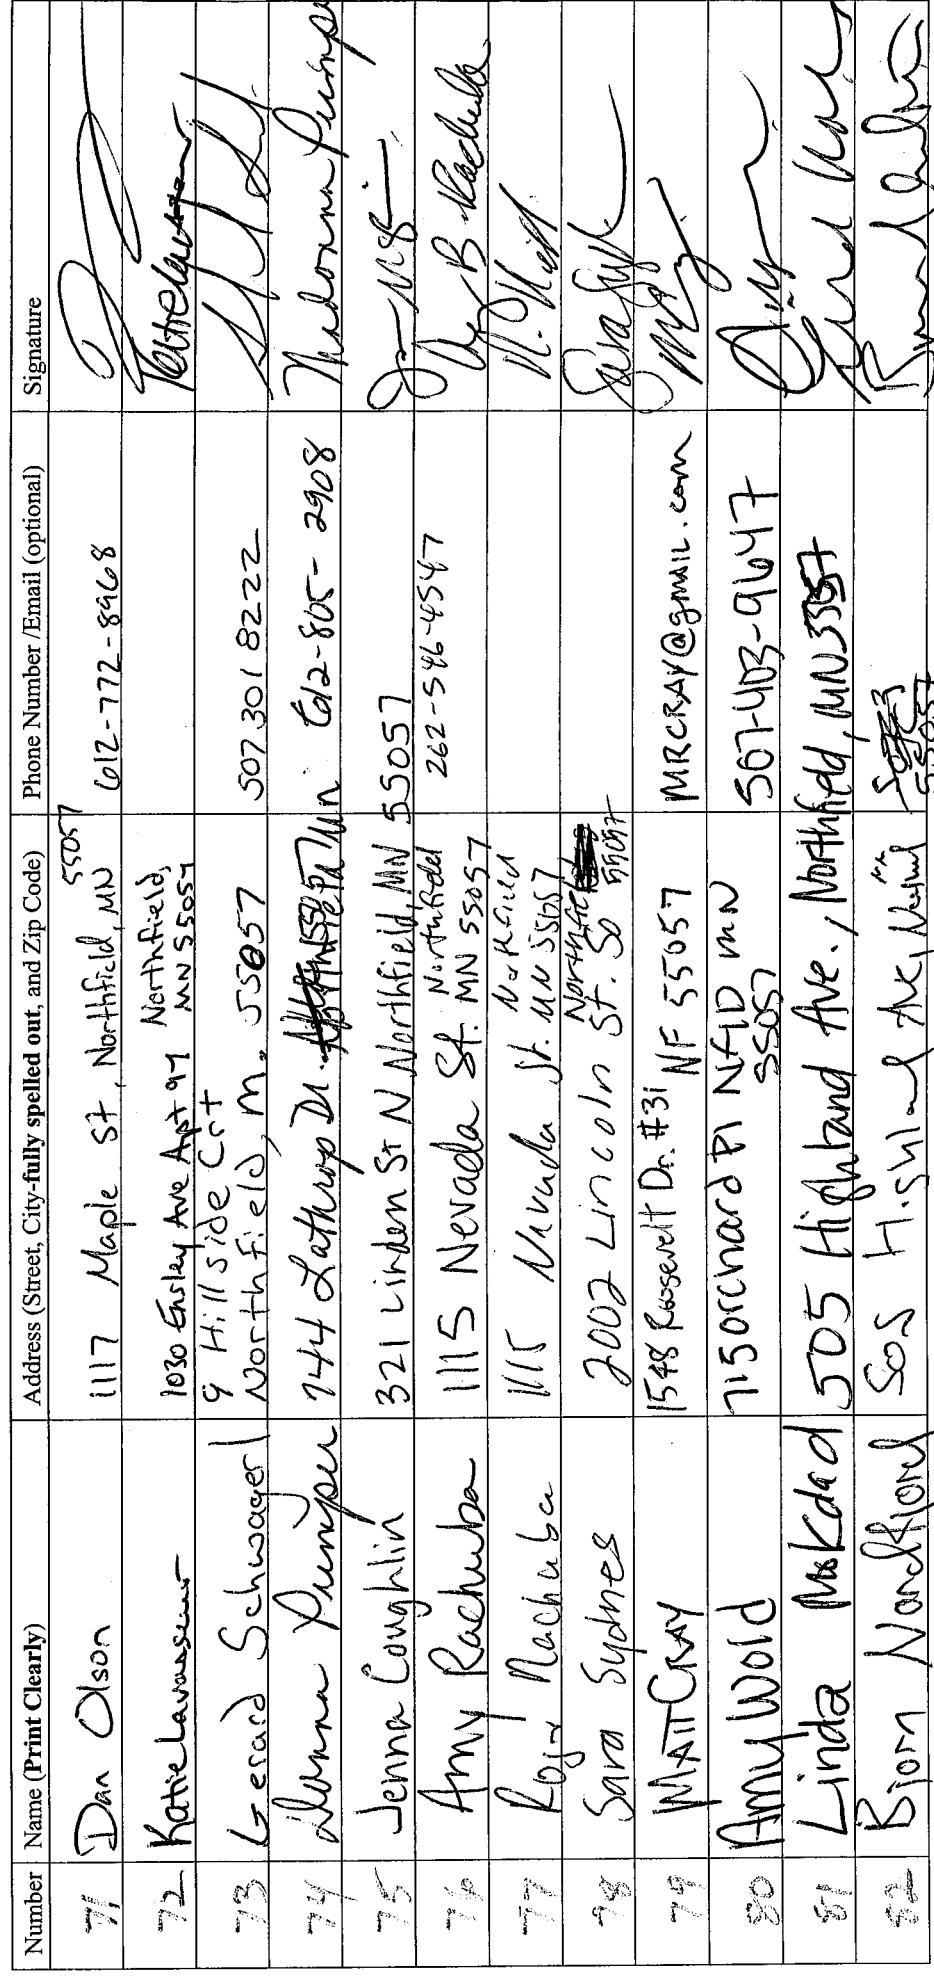 Number Name (Print Clearly) Address (Street, City-fully spelled out, and Zip Code) Phone Number /Email (optional) Signature
71 Dan Olson 1117 Maple St, Northfield, MN 55057 612-772-8968
72 Katie Lavasseur 1030 Ensley Ave Apt 97 Northfield, MN 55057
73 Gerard Schwagerl 9 Hillside Crt
Northfield, M. 55057 507 301 8222
74 Donna Pumper 744 Lathrop Dr. Mn 612-805-2908
75 Jenna Coughlin 321 Linden St N Northfield, MN 55057
76 Amy Rachuba 1115 Nevada St. Northfield MN 55057 262-546-4547
77 Rachuba 1115 Nevada St. Northfield MN 55057
78 Sara Sydnes 2002 Lincoln St. So Northfield 55057
79 MATT CRAY 1548 Roosevelt Dr. #31 NF 55057 MRCRAY@gmail.com
80 Amy Wold 715 Orchard Pl NFLD MN
55057 507-403-9647
81 Linda Mokdad 505 Highland Ave., Northfield, MN
82 Bjorn 505 Highland Ave, 55057